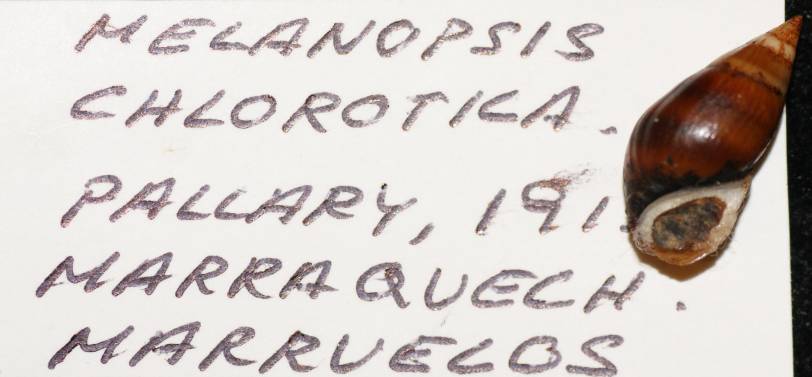 MELANOPSIS
CHLOROTICA.
PALLARY,
MARRAQUECH.
MARRUECOS